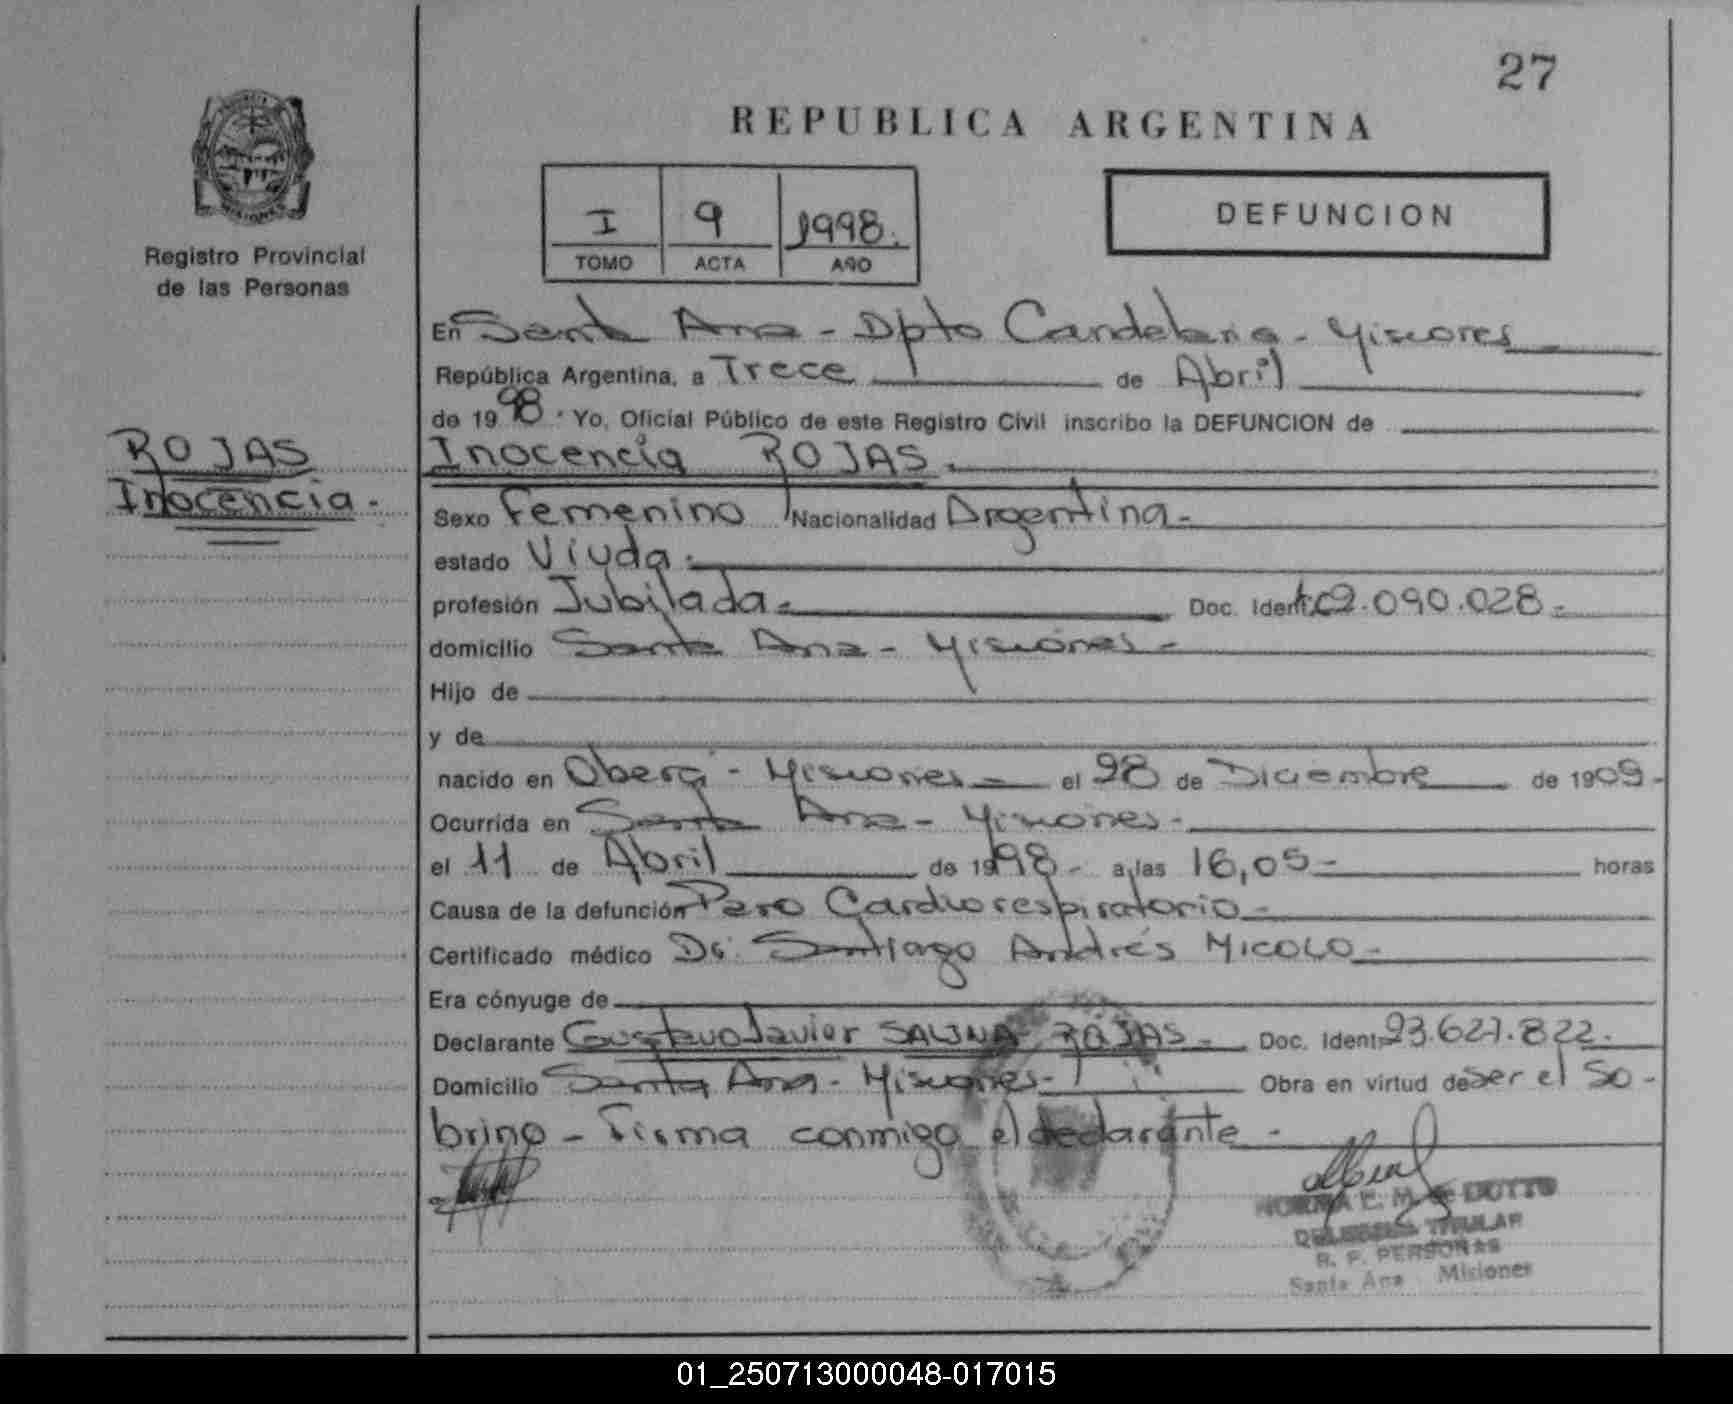 27
REPUBLICA ARGENTINA
MISIONES
Registro Provincial
de las Personas
I 9 1998.
TOMO ACTA AÑO
DEFUNCION
ROJAS
Inocencia.
En Santa Ana - Dpto Candelaria - Misiones
República Argentina, a Trece de Abril
de 1998. Yo, Oficial Público de este Registro Civil inscribo la DEFUNCION de
Inocencia ROJAS.
Sexo Femenino Nacionalidad Argentina-
estado Viuda.
profesión Jubilada- Doc. Ident. 2.090.028-
domicilio Santa Ana - Misiones-
Hijo de
y de
nacido en Oberá - Misiones- el 28 de Diciembre de 1909-
Ocurrida en Santa Ana - Misiones-
el 11 de Abril de 1998- a las 16,05- horas
Causa de la defunción Paro Cardiorespiratorio-
Certificado médico Dr. Santiago Andrés MICOLO-
Era cónyuge de
Declarante Gustavo Javier SALINA ROJAS- Doc. Ident. 93.627.822.
Domicilio Santa Ana - Misiones- Obra en virtud de ser el So-
brino - Firma conmigo el declarante-
NORMA E. M. de DUTTO
DELEGADA TITULAR
R. P. PERSONAS
Santa Ana Misiones
01_250713000048-017015